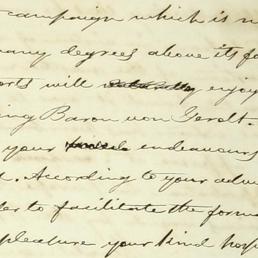 campaign which is n
many degrees above its fo
orts will naturally enjoy
ing Baron von Gerolt.
your endeavours
d. According to your adv
er to facilitate the form
pleasure your kind hop